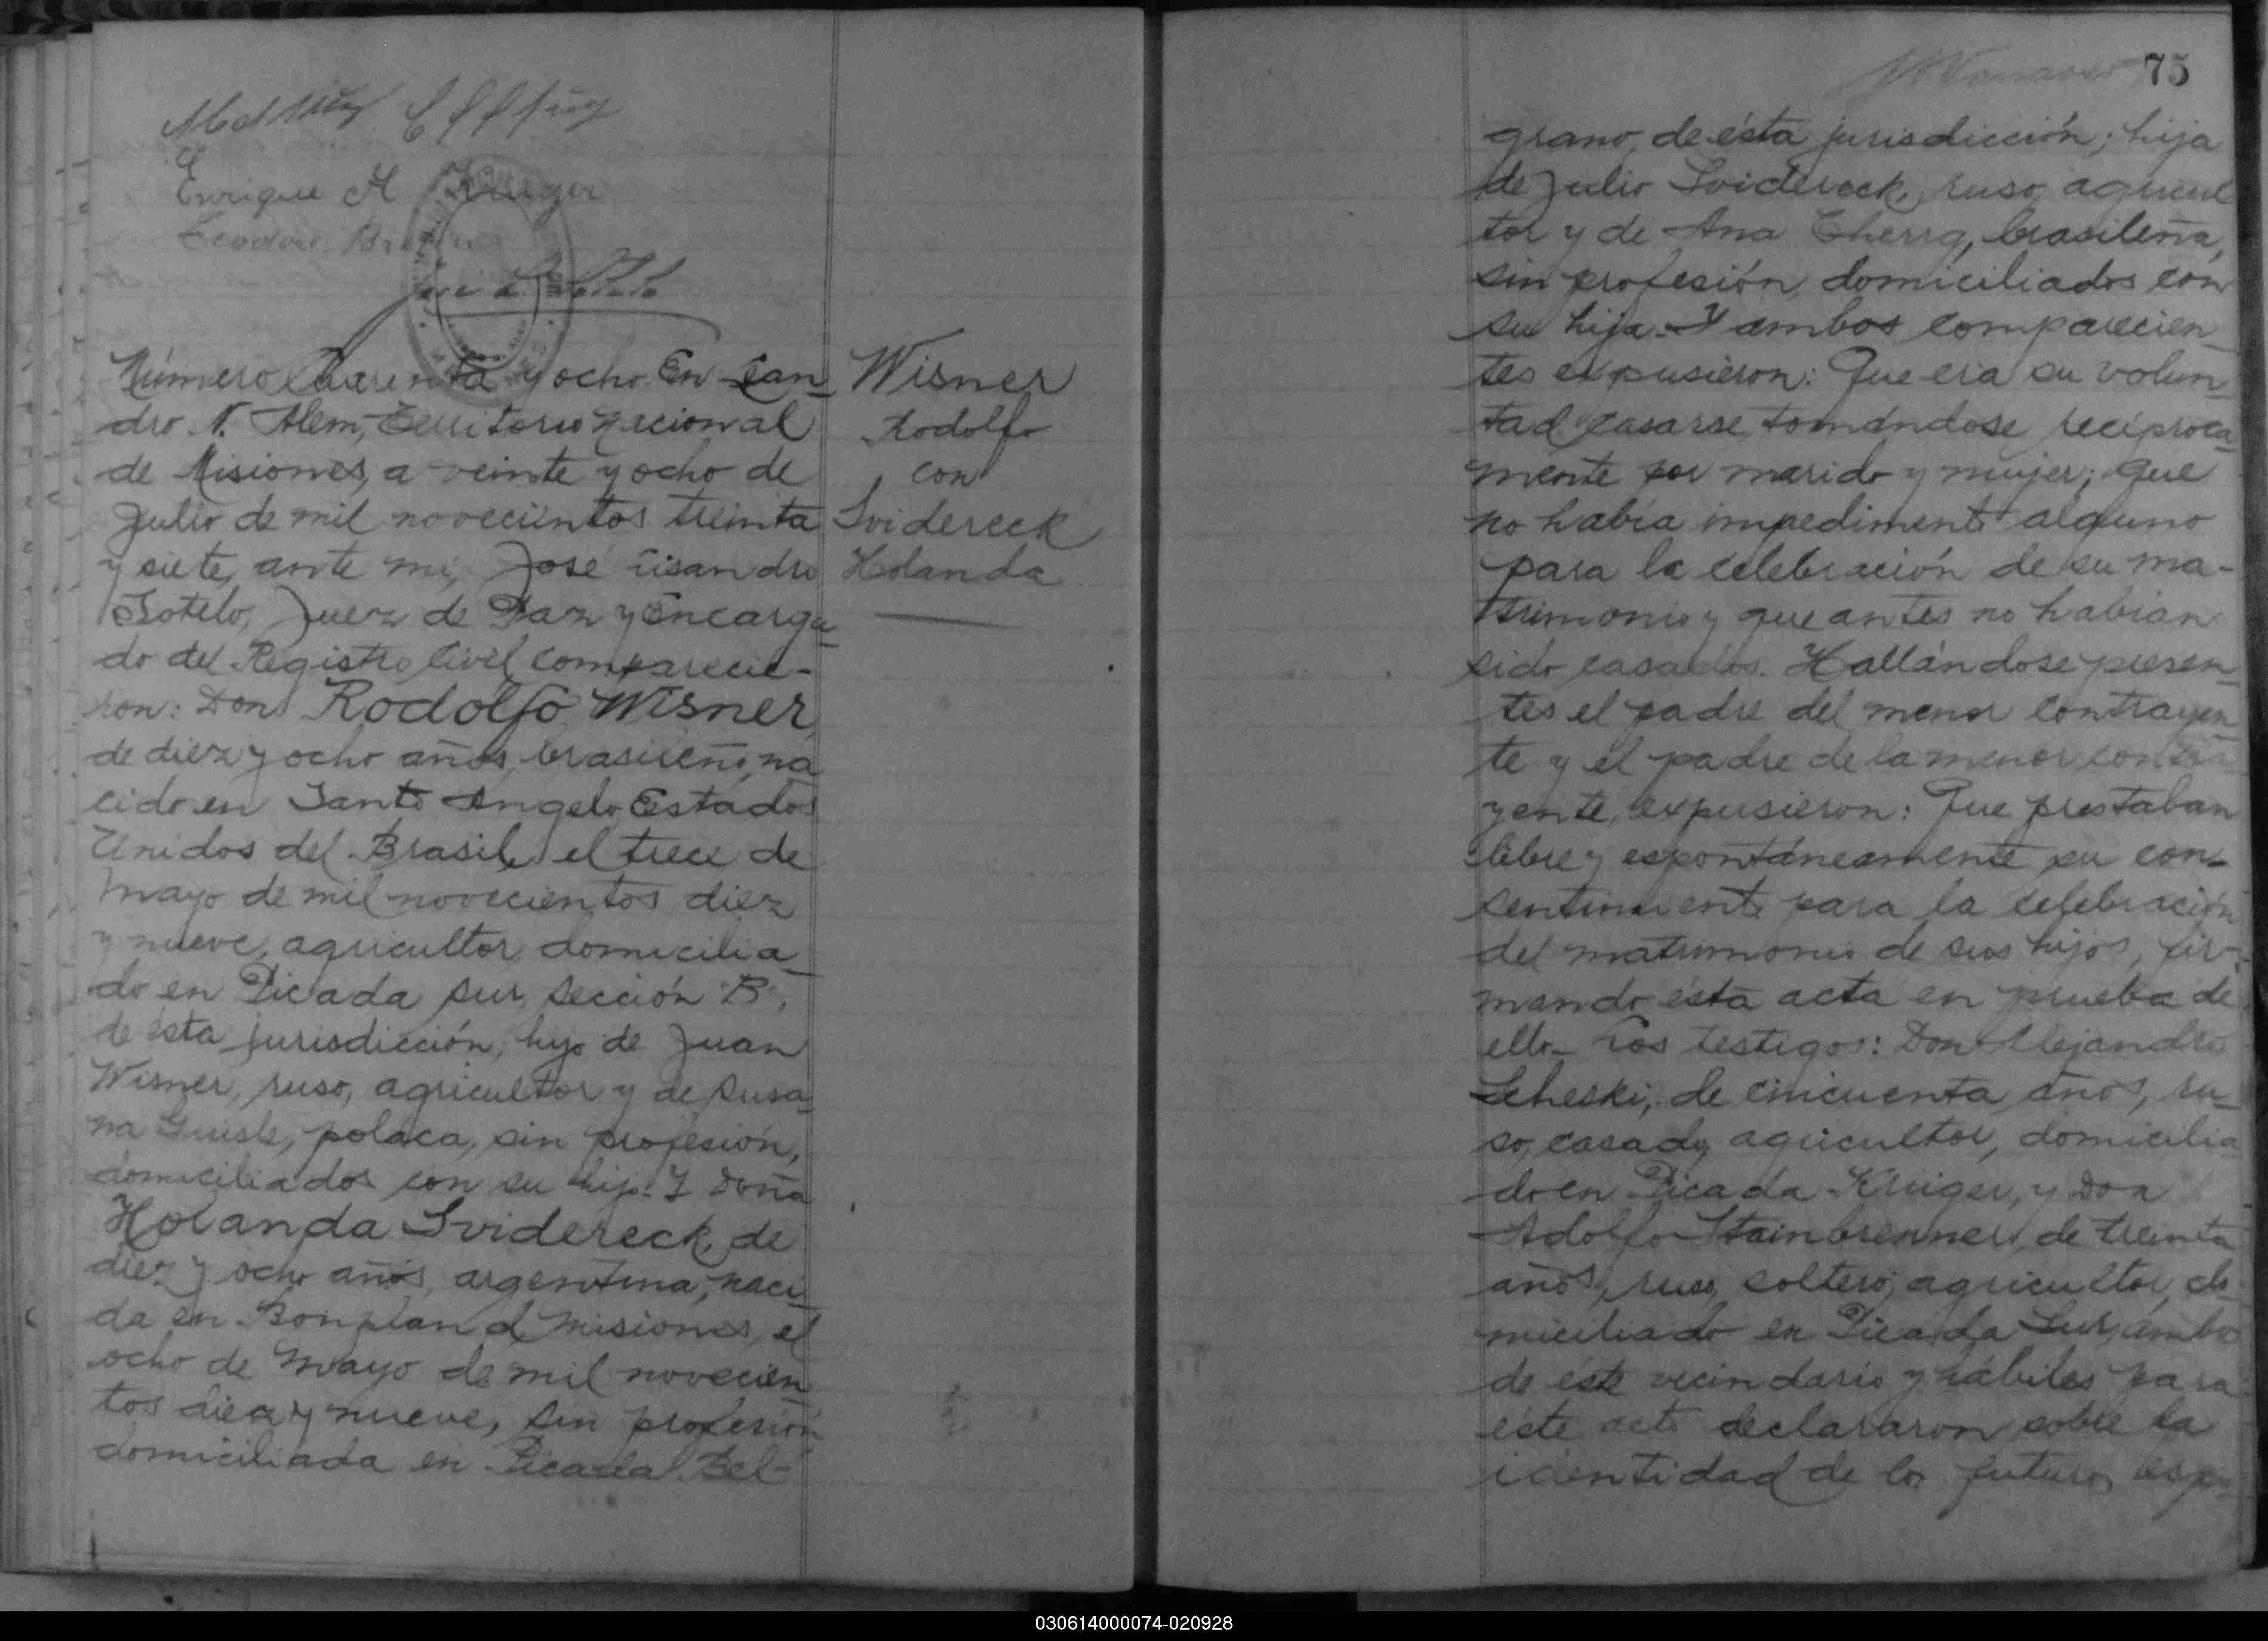 Enrique A Kruger
Teodoro
Número Cuarenta y ocho. En Lean-
dro N. Alem, Territorio Nacional
de Misiones, a veinte y ocho de
Julio de mil novecientos treinta
y siete, ante mí, José Lisandro
Sotelo, Juez de Paz y Encarga-
do del Registro Civil comparecie-
ron: Don Rodolfo Wisner,
de diez y ocho años, brasileño, na
cido en Santo Angelo Estados
Unidos del Brasil, el trece de
Mayo de mil novecientos diez
y nueve, agricultor, domicilia-
do en Picada sur, sección "B",
de ésta jurisdicción, hijo de Juan
Wisner, ruso, agricultor y de Susa-
na polaca, sin profesión,
domiciliados con su hijo. Y Doña
Holanda Svidereck, de
diez y ocho años, argentina, naci-
da en Bonpland Misiones, el
ocho de Mayo de mil novecien
tos diez y nueve, sin profesión,
domiciliada en Picada Bel-
Wisner
Rodolfo
con
Svidereck
Holanda
75
grano, de ésta jurisdicción; hija
de Julio Svidereck, ruso, agricul
tor y de Ana Cherig, brasileña,
sin profesión, domiciliados con
su hija. Y ambos comparecien-
tes expusieron: Que era su volun-
tad casarse tomándose recíproca-
mente por marido y mujer; que
no había impedimento alguno
para la celebración de su ma-
trimonio y que antes no habían
sido casados. Hallándose presen-
tes el padre del menor contrayen-
te y el padre de la menor contra-
yente, expusieron: Que prestaban
libre y espontáneamente su con-
sentimiento para la celebración
del matrimonio de sus hijos, fir-
mando ésta acta en prueba de
ello. Los testigos: Don Alejandro
Scheski, de cincuenta años, ru-
so, casado, agricultor, domicilia-
do en Picada Krüger, y Don
Adolfo Stainbrenner, de treinta
años, ruso, soltero, agricultor, do-
miciliado en Picada Sur, ambos
de éste vecindario y hábiles para
éste acto declararon sobre la
identidad de los futuros espo-
030614000074-020928